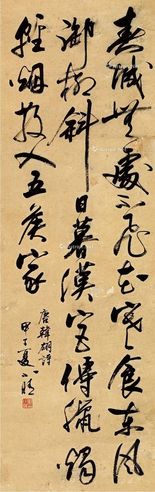 春城無處不飛花寒食東風
御柳斜日暮漢宮傳蠟燭
輕烟散入五侯家
唐韓翃詩